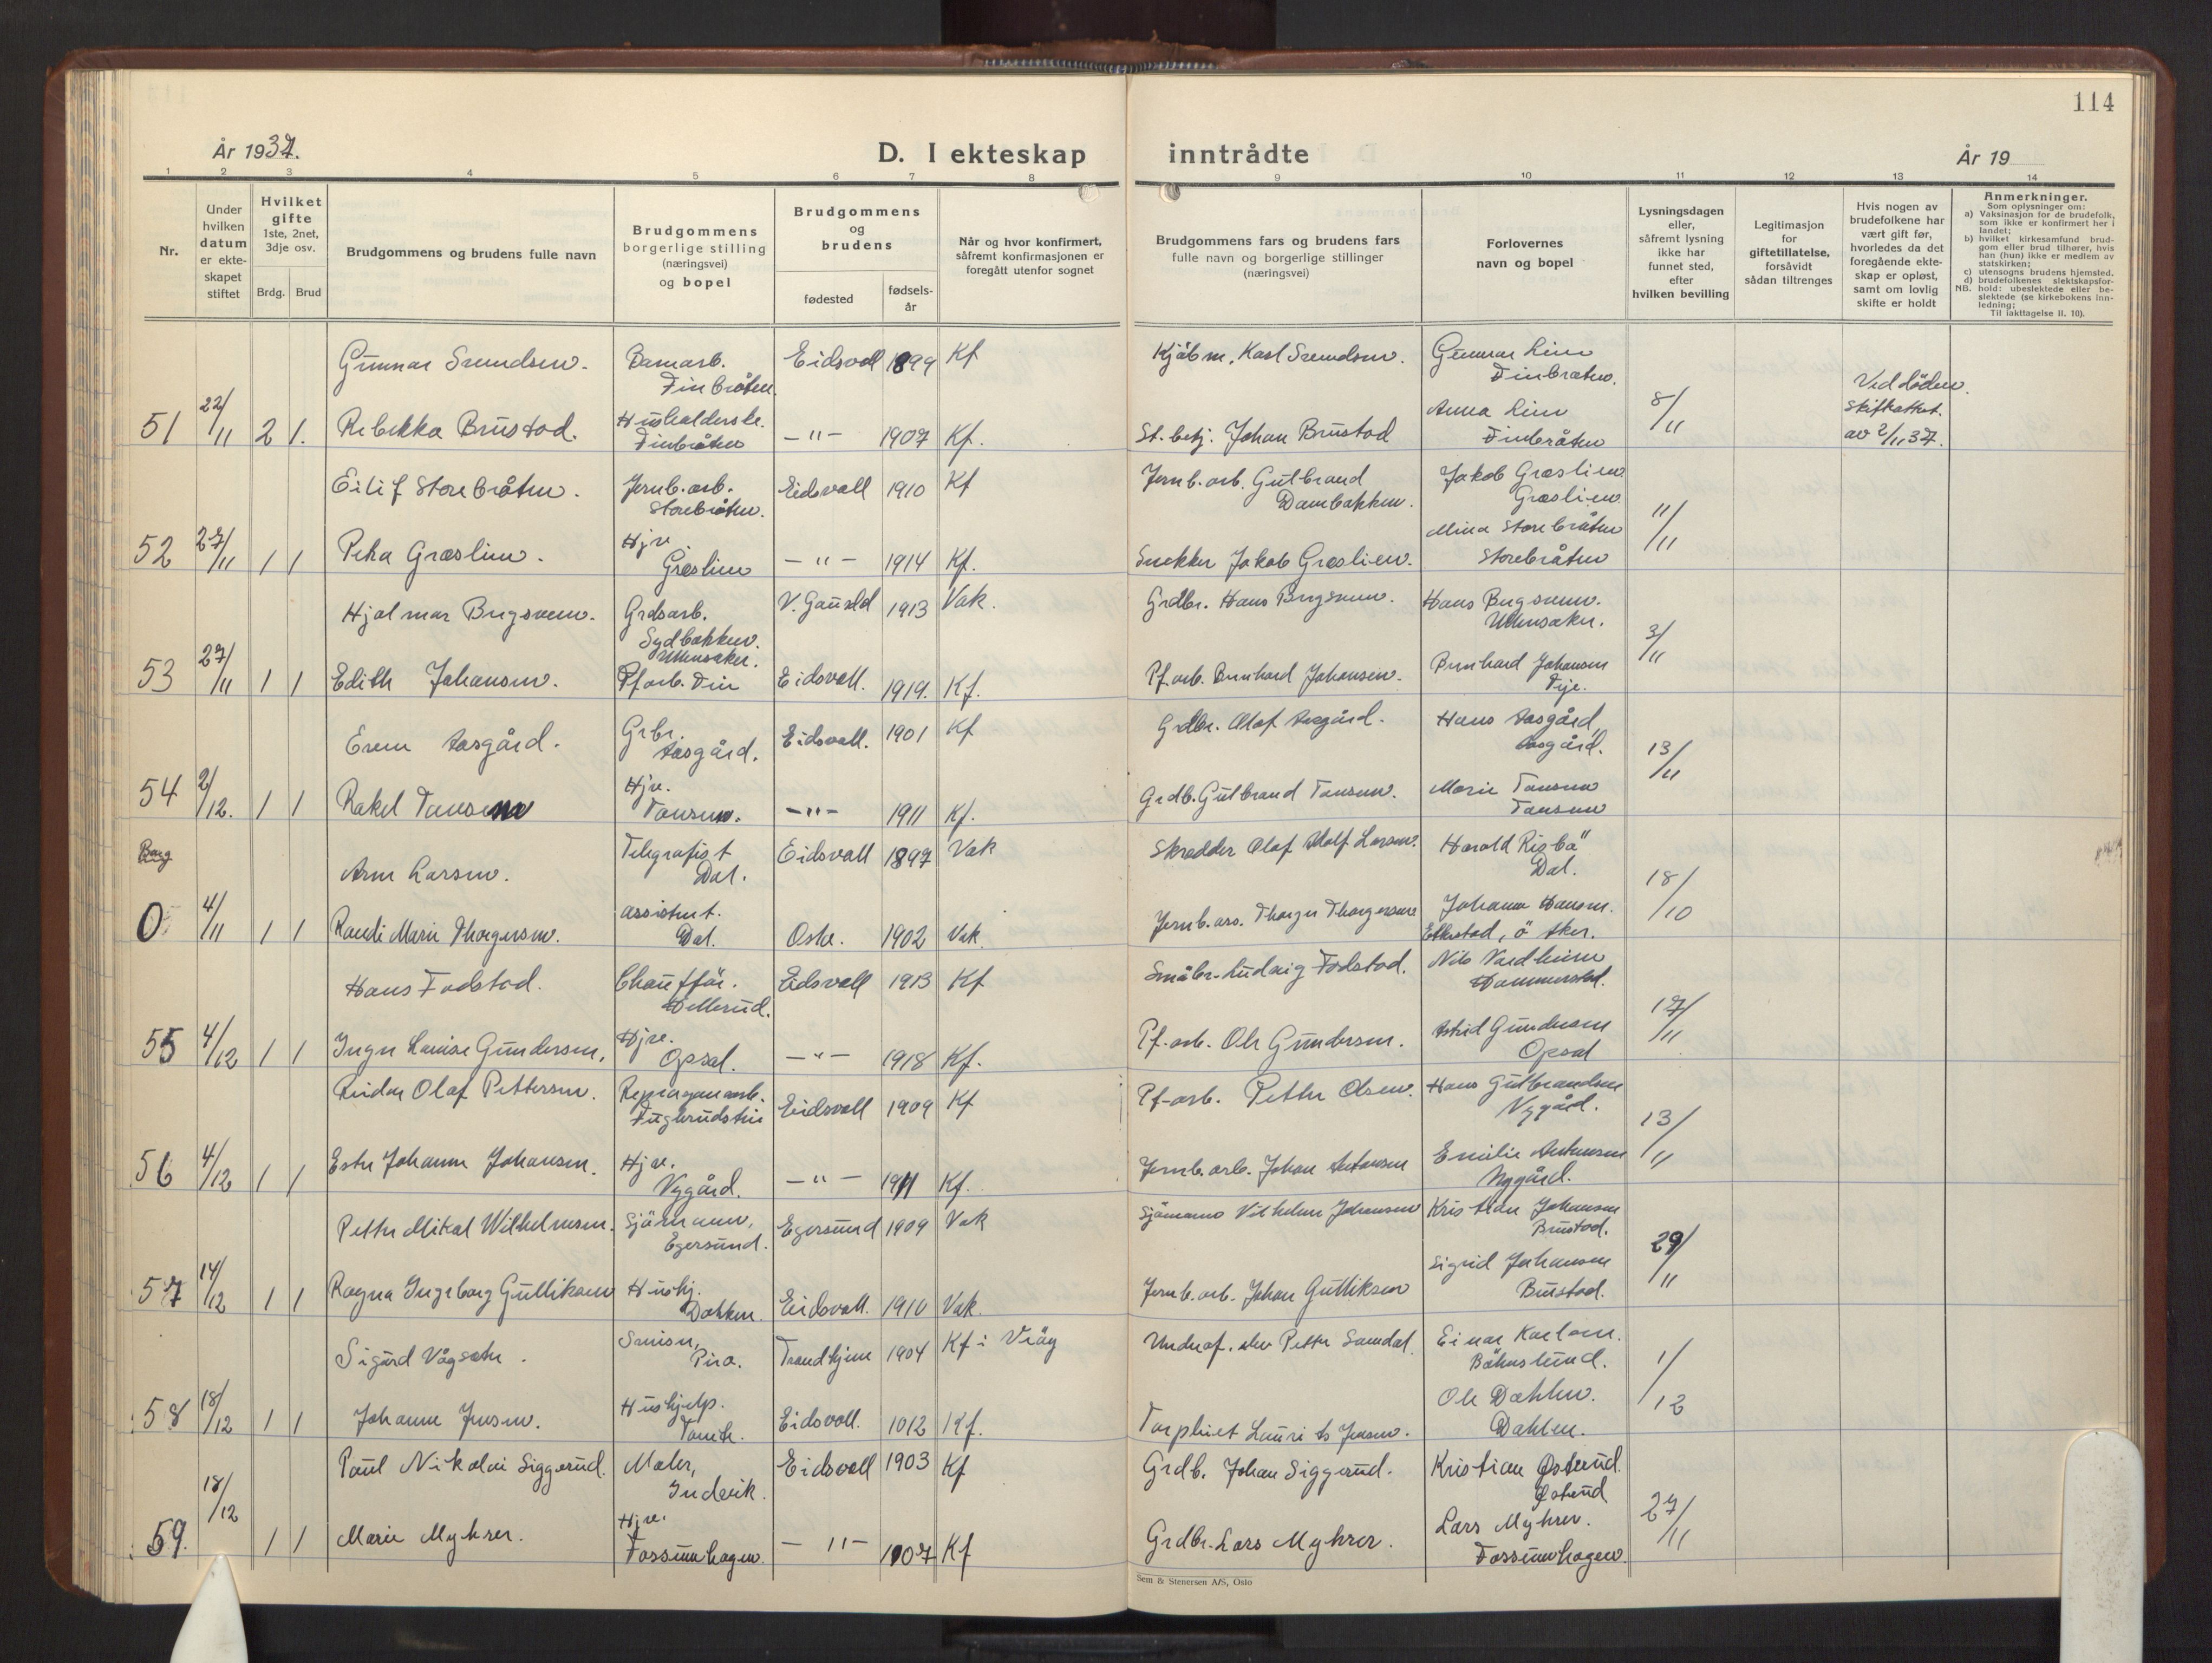 114
År 1937.
D. I ekteskap inntrådte
År 19
1 2 3 4 5 6 7 8 9 10 11 12 13 14
Nr.
Under
hvilken
datum
er ekte-
skapet
stiftet
Hvilket
gifte
1ste, 2net,
3dje osv.
Brdg. Brud
Brudgommens og brudens fulle navn
Brudgommens
borgerlige stilling
(næringsvei)
og bopel
Brudgommens
og
brudens
fødested
fødsels-
år
Når og hvor konfirmert,
såfremt konfirmasjonen er
foregått utenfor sognet
Brudgommens fars og brudens fars
fulle navn og borgerlige stillinger
(næringsvei)
Forlovernes
navn og bopel
Lysningsdagen
eller,
såfremt lysning
ikke har
funnet sted,
efter
hvilken bevilling
Legitimasjon
for
giftetillatelse,
forsåvidt
sådan tiltrenges
Hvis nogen av
brudefolkene har
vært gift før,
hvorledes da det
foregående ekte-
skap er opløst,
samt om lovlig
skifte er holdt
Anmerkninger.
Som oplysninger om:
a) Vaksinasjon for de brudefolk,
som ikke er konfirmert her i
landet;
b) hvilket kirkesamfund brud-
gom eller brud tilhører, hvis
han (hun) ikke er medlem av
statskirken;
c) utensogns brudens hjemsted.
d) brudefolkenes slektskapsfor-
NB. hold: ubeslektede eller be-
slektede (se kirkebokens inn-
ledning;
Til iakttagelse II. 10).
Gunnar Svendsen. Damarb. Eidsvoll 1899 Kf Kjøbm. Karl Svendsen. Gunnar Lien
Finbråten. Finbråten.
51 22/11 2 1. Rebekka Brustad. Husholderske. -"- 1907 Kf. St. betj. Johan Brustad Anna Lien 8/11 Ved döden.
Finbråten Finbråten Skifteattest.
av 2/11 37.
Eilif Storebråten. Jernb. arb. Eidsvoll 1910 Kf Jernb. arb. Gutbrand Jakob Græslien
Storebråten. Dambakken. Græslien
52 27/11 1 1 Petra Græslien. Hjv. -"- 1914 Kf. Snekker Jakob Græslien. Mina Storebråten 11/11
Græslien Storebråten
Hjalmar Brygsveen. Grdsarb. V. Gausdal 1913 Vak. Grdbr. Hans Brygsveen. Hans Brygsveen.
Sydbakken. Ullensaker.
Ullensaker.
53 27/11 1 1 Edith Johansen. Pf arb. Eidsvoll. 1919. Kf. Pf. arb. Bernhard Johansen. Bernhard Johansen 3/11
Even Aasgård. Grbr. Eidsvoll. 1901 Kf Grdbr. Olaf Aasgård. Hans Aasgård
Aasgård. Aasgård.
54 2/12. 1 1 Rakel Tansem Hjv. -"- 1911 Kf. Grdb. Gutbrand Tansem. Marie Tansem 13/11
Tansem. Tansem
Borg
Arne Larsen. Telegrafist Eidsvoll 1897 Vak Skredder Olaf Adolf Larsen. Harald Risbø
Dal. Dal.
0 4/11 1 1 Randi Marie Thorgersen. assistent. Oslo. 1902 Vak. Jernb. ass. Thorger Thorgersen Johanne Hansen. 18/10
Dal.
Hans Fodstad. Chauffør. Eidsvoll 1913 Kf Småbr. Ludvig Fodstad. Nils Nordheim
Hammerstad.
55 4/12 1 1 Inger Louise Gundersen. Hjv. -"- 1918 Kf. Pf. arb. Ole Gundersen. Astrid Gundersen 17/11
Opsal. Opsal
Reidar Olaf Pettersen. Eidsvoll 1909 Kf Pf-arb. Petter Olsen. Hans Gutbrandsen
Nygård.
56 4/12 1 1 Ester Johanne Johansen. Hjv. -"- 1911 Kf. Jernb. arb. Johan Antonsen Emilie Antonsen 13/11
Nygård. Nygård.
Petter Mikal Wilhelmsen. Sjømann, Egersund 1909 Vak Sjømann Vilhelm Johansen Kristian Johansen
Egersund. Brustad.
57 14/12 1 1 Ragna Ingeborg Gulliksen Hushj. Eidsvoll. 1910 Vak. Jernb. arb. Johan Gulliksen Sigrid Johansen 29/11
Bakken. Brustad.
Sigurd Vågsæter. Trondhjem 1904 Kf i Petter Samdal. Einar Karlsen.
Bøhnslund.
58 18/12 1 1 Johanne Jensen. Hushjelp. Eidsvoll. 1912 Kf. Lauritz Jensen. Ole Dahlen. 1/12
Dahlen.
Paul Nikolai Siggerud. Maler, Eidsvoll 1903 Kf Grdb. Johan Siggerud. Kristian Østerud.
Inderik. Østerud
59. 18/12 1 1 Marie Myhrer. Hjv. -"- 1907 Kf Grdbr. Lars Myhrer. Lars Myhrer. 27/11
Fossumhagen. Fossumhagen.
Sem & Stenersen A/S, Oslo